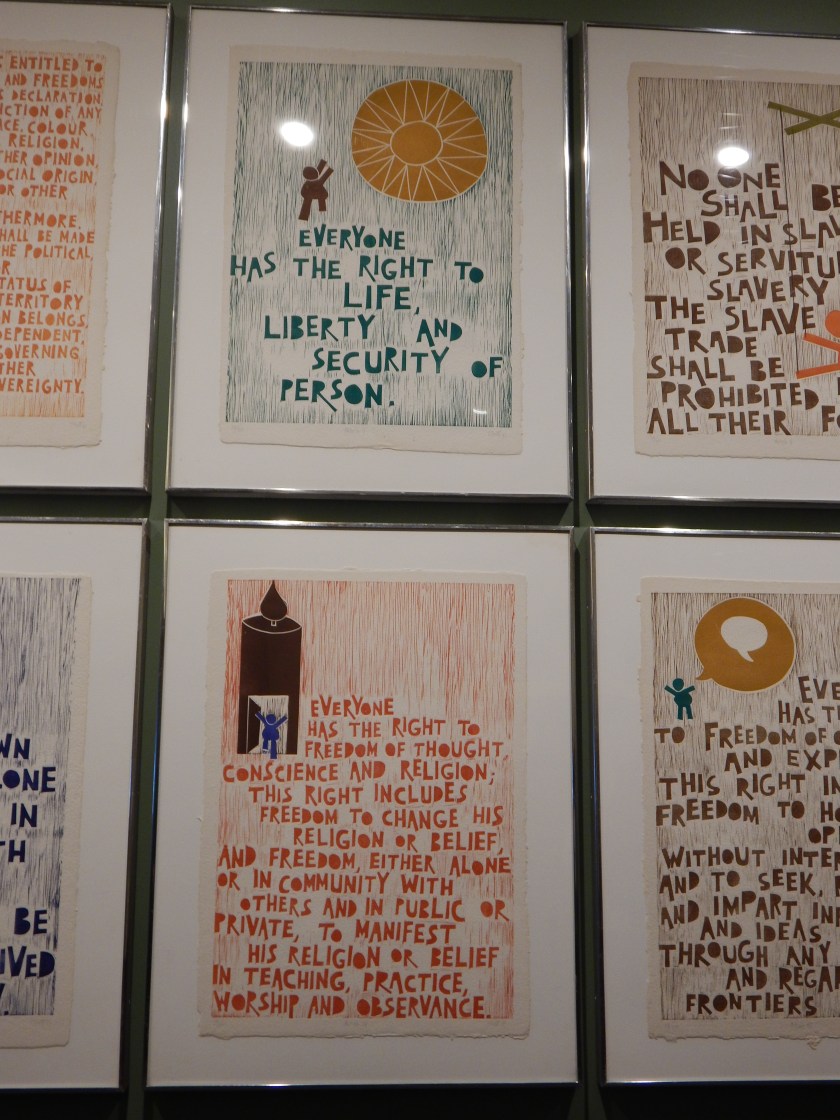 ENTITLED TO
AND FREEDOMS
DECLARATION.
CTION OF ANY
CE, COLOUR,
RELIGION,
HER OPINION,
OCIAL ORIGIN,
OR OTHER
THERMORE,
HALL BE MADE
HE POLITICAL
OR
STATUS OF
TERRITORY
ON BELONGS,
DEPENDENT,
GOVERNING
THER
VEREIGNTY.
EVERYONE
HAS THE RIGHT TO
LIFE,
LIBERTY AND
SECURITY OF
PERSON.
NO ONE
SHALL BE
HELD IN SLAV
OR SERVITU
SLAVERY
THE SLAVE
TRADE
SHALL BE
PROHIBITED
ALL THEIR FO
WN
LONE
IN
TH
BE
IVED
EVERYONE
HAS THE RIGHT TO
FREEDOM OF THOUGHT,
CONSCIENCE AND RELIGION;
THIS RIGHT INCLUDES
FREEDOM TO CHANGE HIS
RELIGION OR BELIEF,
AND FREEDOM, EITHER ALONE
OR IN COMMUNITY WITH
OTHERS AND IN PUBLIC OR
PRIVATE, TO MANIFEST
HIS RELIGION OR BELIEF
IN TEACHING, PRACTICE,
WORSHIP AND OBSERVANCE.
EVE
HAS TH
TO FREEDOM OF O
AND EXP
THIS RIGHT IN
FREEDOM TO H
OP
WITHOUT INTE
AND TO SEEK,
AND IMPART IN
AND IDEAS
THROUGH ANY
AND REGA
FRONTIERS